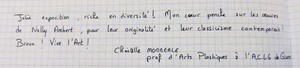 Jolie exposition, riche en diversité! Mon cœur penche sur les œuvres
de Nelly Ambert, pour leur originalité et leur classicisme contemporain!
Bravo! Vive l'Art!
Christelle
prof d'Arts Plastiques à l'A.C.L.G de